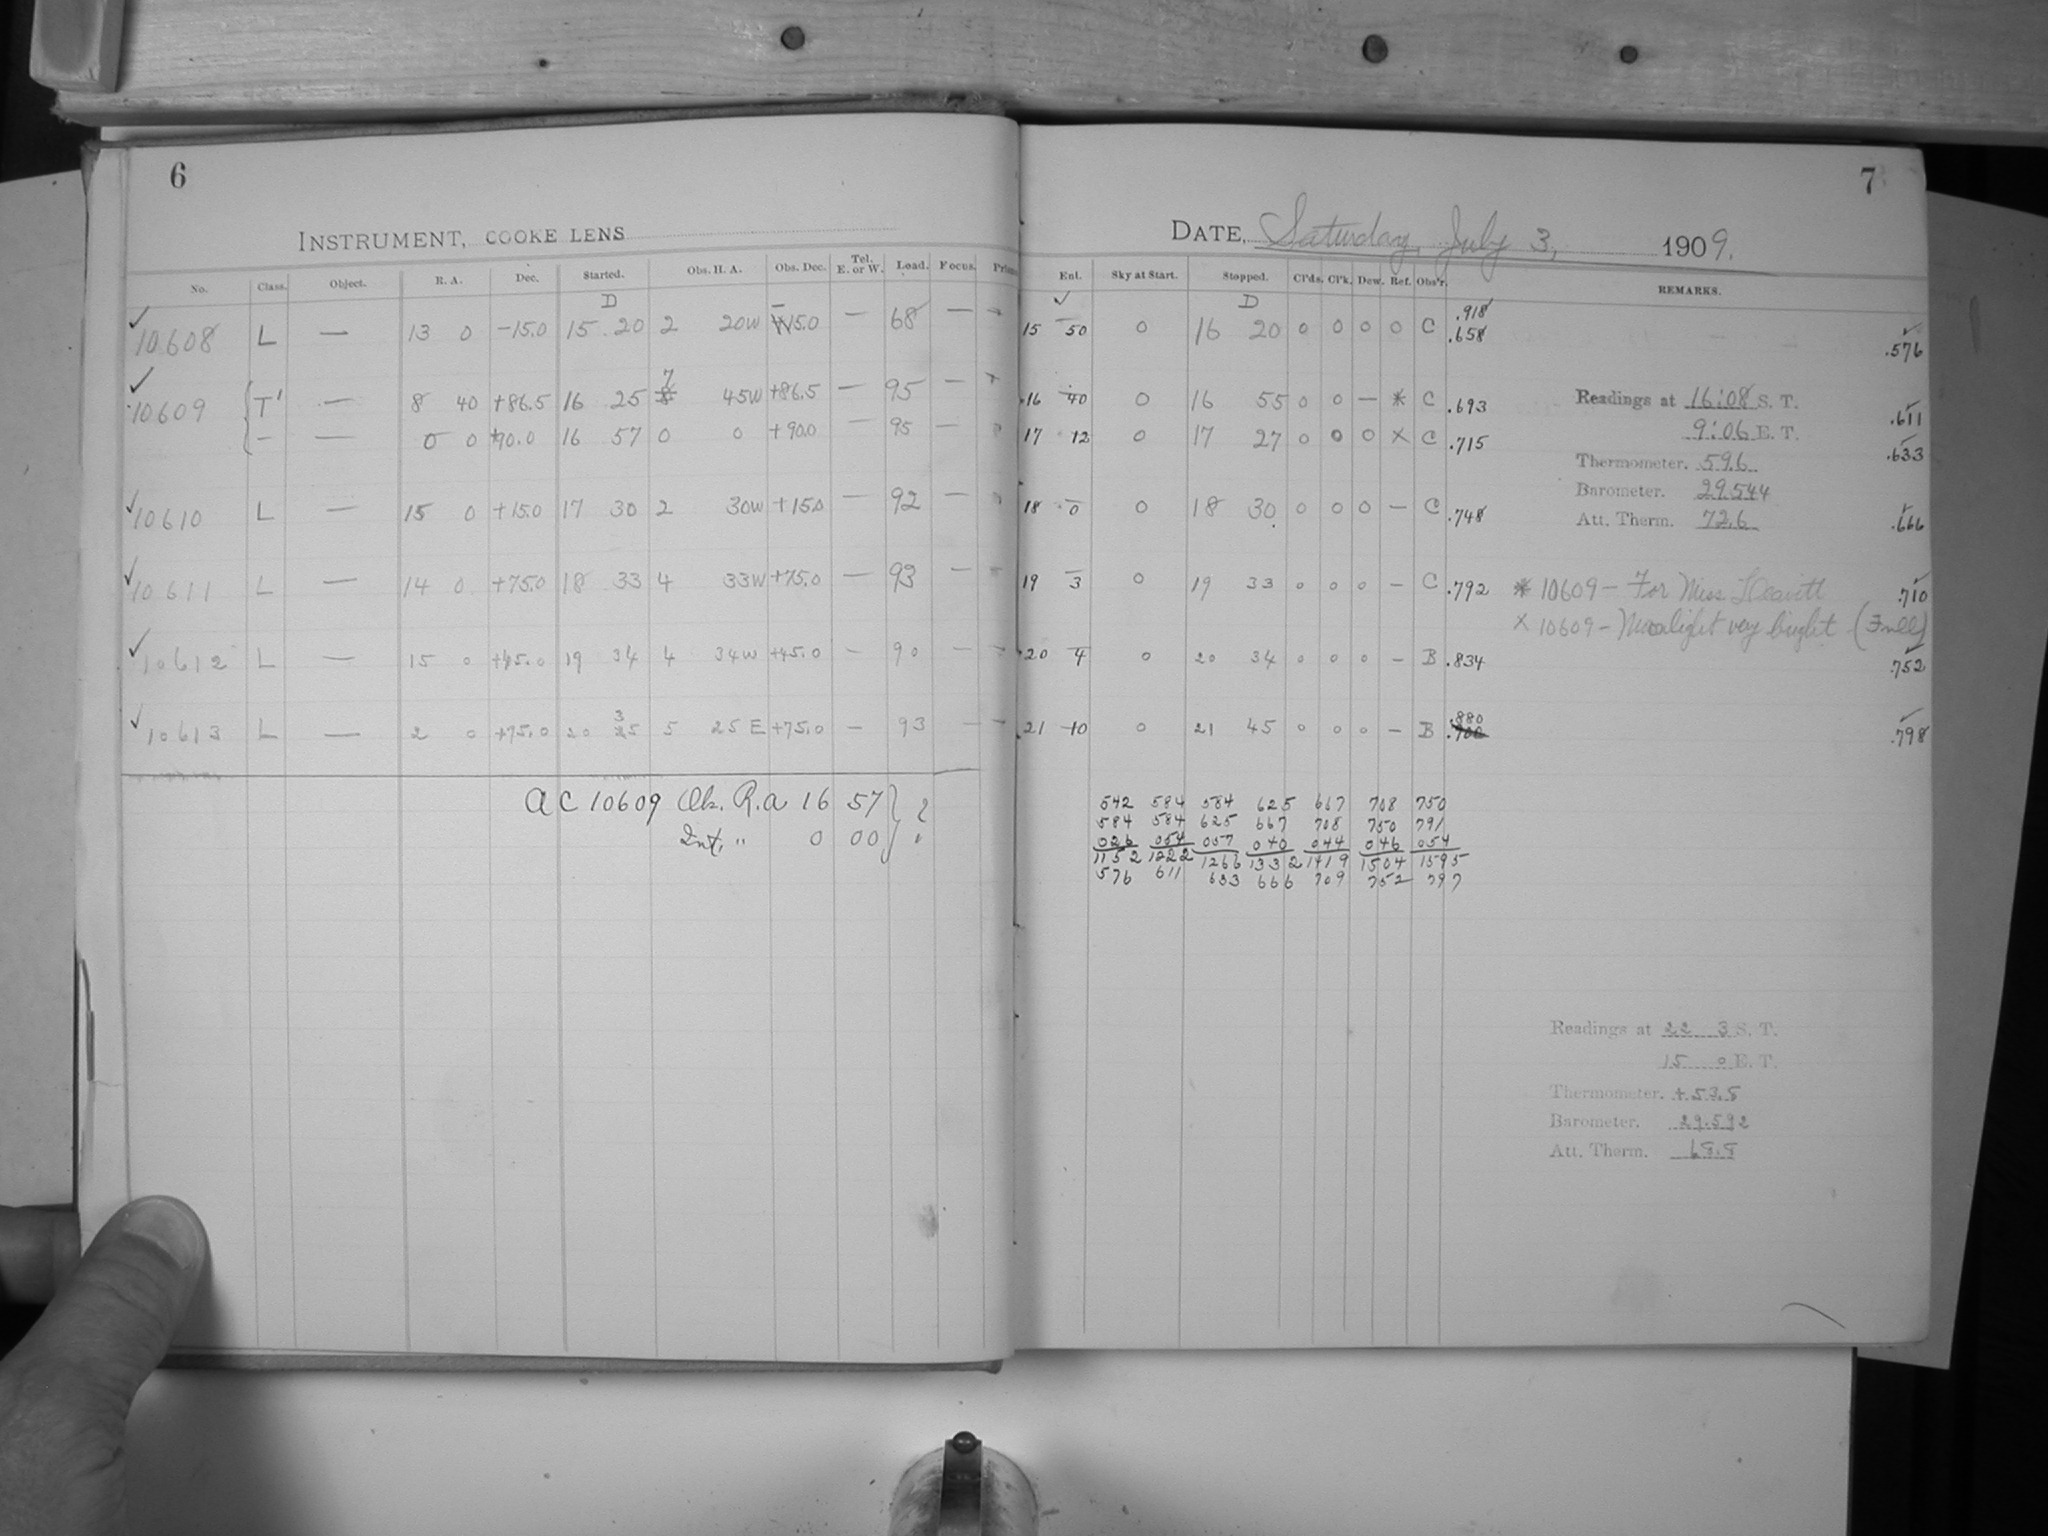 6
INSTRUMENT, COOKE LENS
No. Class. Object. R. A. Dec. Started. Obs. H. A. Obs. Dec. Tel. E. or W. Load. Focus. Prism
D
10608 L — 13 0 −15.0 15 20 2 20W −15.0 — 68 — —
10609 T' — 8 40 +86.5 16 25 7 45W +86.5 — 95 —
— — 0 0 +90.0 16 57 0 0 +90.0 — 95
10610 L — 15 0 +15.0 17 30 2 30W +15.0 — 92 —
10611 L — 14 0 +75.0 18 33 4 33W +75.0 — 93 — —
10612 L — 15 0 +45.0 19 34 4 34W +45.0 — 90 — —
10613 L — 2 0 +75.0 20 35 5 25 E +75.0 — 93 — —
AC 10609 Ob. R.A 16 57 } ?
Int. " 0 00
7
DATE, Saturday, July 3, 1909.
Enl. Sky at Start. Stopped. Cl'ds. Cl'k. Dew. Ref. Obs'r. REMARKS.
D
.918
15 50 0 16 20 0 0 0 0 C .658 .576
16 40 0 16 55 0 0 — * C .693 .611
17 12 0 17 27 0 0 0 X C .715 .633
18 0 0 18 30 0 0 0 — C .748 .666
19 3 0 19 33 0 0 0 — C .792 .710
20 4 0 20 34 0 0 0 — B .834 .752
21 10 0 21 45 0 0 0 — B .880 .798
Readings at 16:08 S. T.
9:06 E. T.
Thermometer. 59.6
Barometer. 29.544
Att. Therm. 72.6
* 10609 — For Miss Leavitt
X 10609 — Moonlight very bright (Full)
542 584 584 625 667 708 750
584 584 625 667 708 750 791
026 054 057 040 044 046 054
1152 1222 1266 1332 1419 1504 1595
576 611 633 666 709 752 797
Readings at 22 3 S. T.
15 0 E. T.
Thermometer. +53.8
Barometer. 29.592
Att. Therm. 68.8